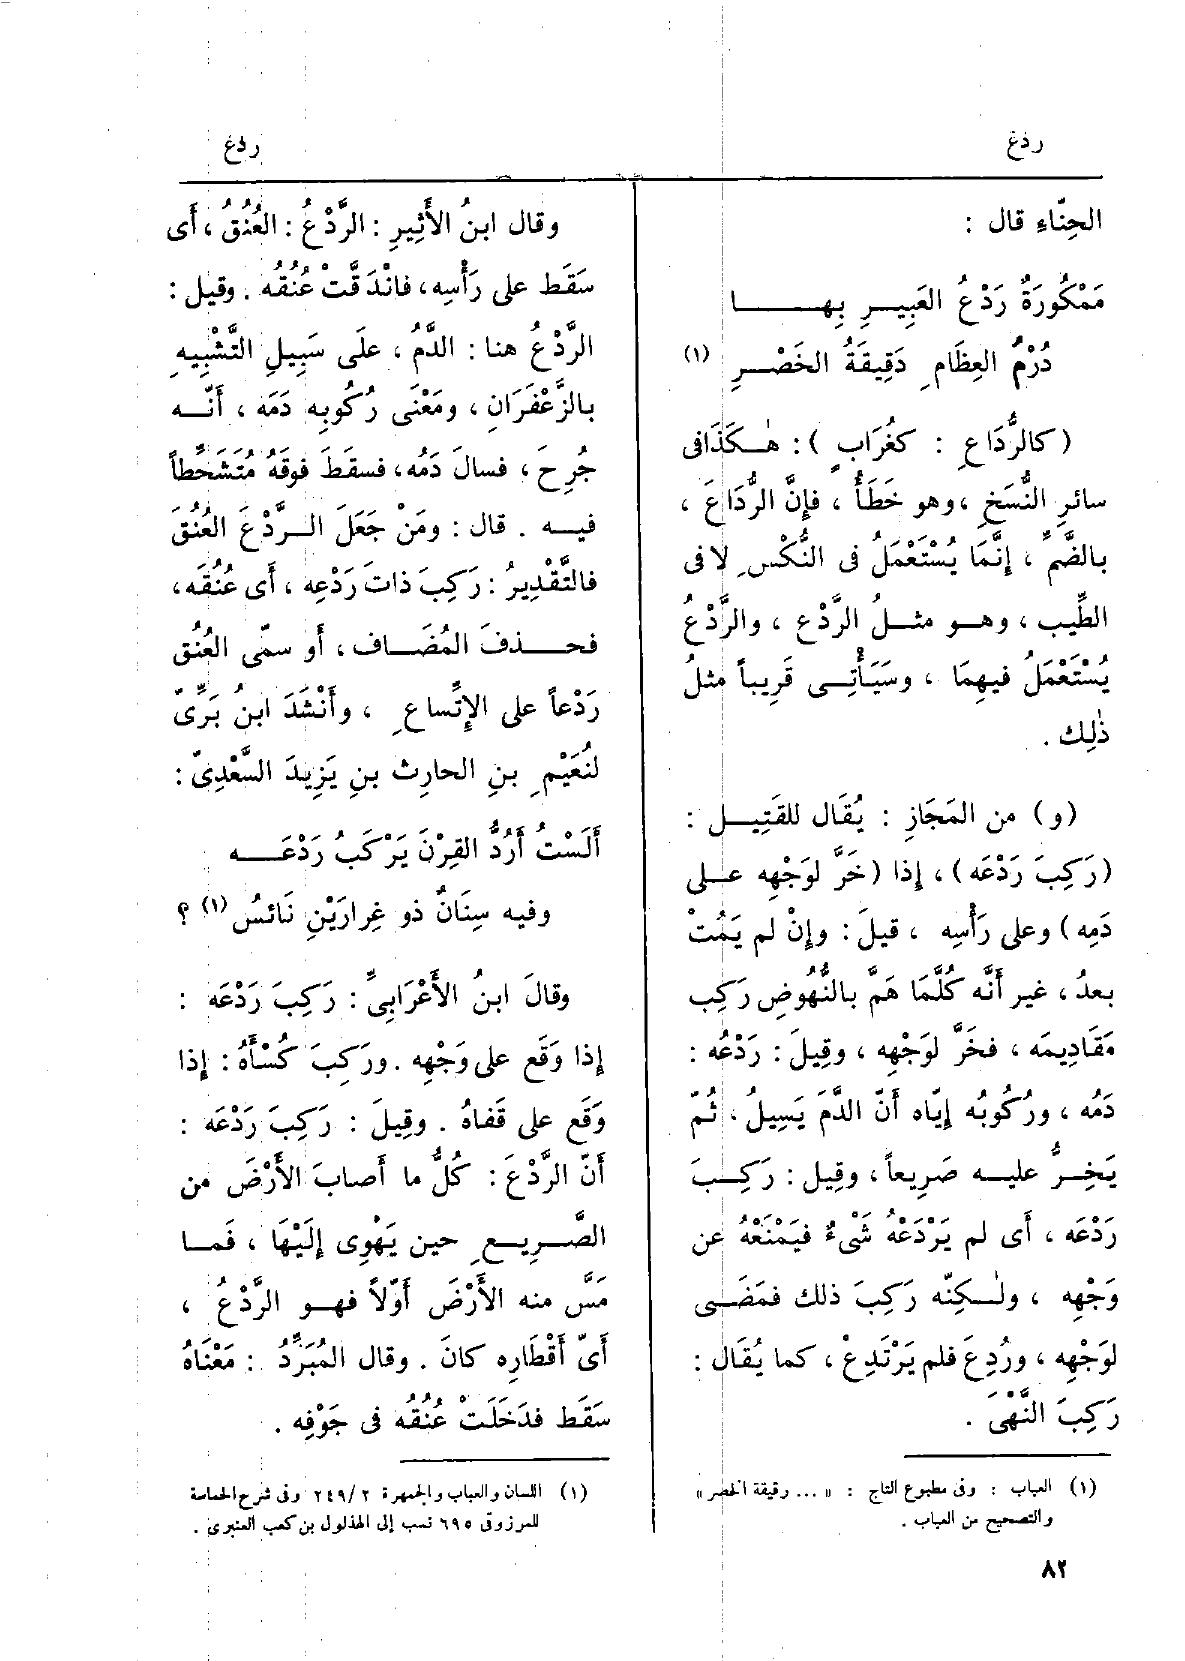 ردغ
ردغ
الحِنّاءِ قال :
مَمْكُورَةٌ رَدْعُ العَبِيـرِ بِهـــا
دُرْمُ العِظَامِ دَقِيقَةُ الخَصْـرِ (١)
( كالرُّدَاعِ : كغُرَابٍ ) : هٰـكَذَافى
سائرِ النُّسَخِ ،وهو خَطَأٌ ، فإنَّ الرُّدَاعَ ،
بالضَّمِّ ، إنَّمَا يُسْتَعْمَلُ فى النُّكْسِ لا فى
الطِّيب ، وهـو مثـلُ الرَّدْعِ ، والرَّدْعُ
يُسْتَعْمَلُ فيهِمَا ، وسَيَأْتِـى قَرِيباً مثلُ
ذٰلِك .
(و) من المَجَازِ : يُقَال للقَتِيـل :
(رَكِبَ رَدْعَه) ، إذا (خَرَّ لوَجْهِه علـى
دَمِه) وعلى رَأْسِه ، قيلَ : وإنْ لم يَمُتْ
بعدُ ، غير أنَّه كُلَّمَا هَمَّ بالنُّهُوضِ رَكِب
مَقَادِيمَه ، فخَرَّ لوَجْهِه ، وقِيلَ : رَدْعُه :
دَمُه ، ورُكُوبُه إيّاه أنّ الدَّمَ يَسِيلُ ، ثُمّ
يَخِـرُّ عليـه صَرِيعاً ، وقِيل : رَكِـبَ
رَدْعَه ، أى لم يَرْدَعْهُ شَىْءٌ فيَمْنَعْهُ عن
وَجْهِه ، ولٰـكِنّه رَكِبَ ذلك فمَضَـى
لوَجْهِه ، ورُدِعَ فلم يَرْتَدِعْ ، كما يُقَال :
رَكِبَ النَّهْىَ .
(١) العباب : وفى مطبوع التاج : « ... رقيقة الخصر »
والتصحيح من العباب .
وقال ابنُ الأَثِيرِ : الرَّدْعُ : العُنُقُ ، أَى
سَقَط على رَأْسِه، فانْدَقَّتْ عُنُقُه . وقيل :
الرَّدْعُ هنا : الدَّمُ ، علَى سَبِيلِ التَّشْبِيهِ
بالزَّعْفَرَانِ ، ومَعْنَى رُكُوبِه دَمَه ، أَنّـه
جُرِحَ ، فسالَ دَمُه، فسقَطَ فوقَهُ مُتَشَحِّطاً
فيـه . قال : ومَنْ جَعَلَ الـرَّدْعَ العُنُقَ
فالتَّقْدِيرُ : رَكِبَ ذاتَ رَدْعِه ، أَى عُنُقَه ،
فحـذفَ المُضَـاف ، أو سمّى العُنُق
رَدْعاً على الاتِّساعِ ، وأَنْشَدَ ابنُ بَرِّىّ
لنُعَيْمِ بنِ الحارِث بنِ يَزِيدَ السَّعْدِىّ :
أَلَسْتُ أَرُدُّ القِرْنَ يَرْكَبُ رَدْعَـــه
وفيه سِنَانٌ ذو غِرارَيْنِ نَائسُ (١) ؟
وقالَ ابنُ الأَعْرَابِىِّ : رَكِبَ رَدْعَه :
إذا وَقَع على وَجْهِه . ورَكِبَ كُسْأَهُ : إذا
وَقَع على قَفاهُ . وقِيلَ : رَكِبَ رَدْعَه :
أنّ الرَّدْعَ : كُلُّ ما أصابَ الأَرْضَ من
الصَّـرِيـعِ حين يَهْوِى إلَيْهَا ، فَمـا
مَسَّ منه الأَرْضَ أوّلاً فهـو الرَّدْعُ ،
أىّ أَقْطَارِه كانَ . وقال المُبَرِّدُ : مَعْنَاهُ
سَقَط فدَخَلَتْ عُنُقُه فى جَوْفِه .
(١) اللسان والعباب والجمهرة ٢/ ٢٤٩ وفى شرح الحماسة
للمرزوقى ٦٩٥ نسب إلى الهذلول بن كعب العنبرى .
٨٢